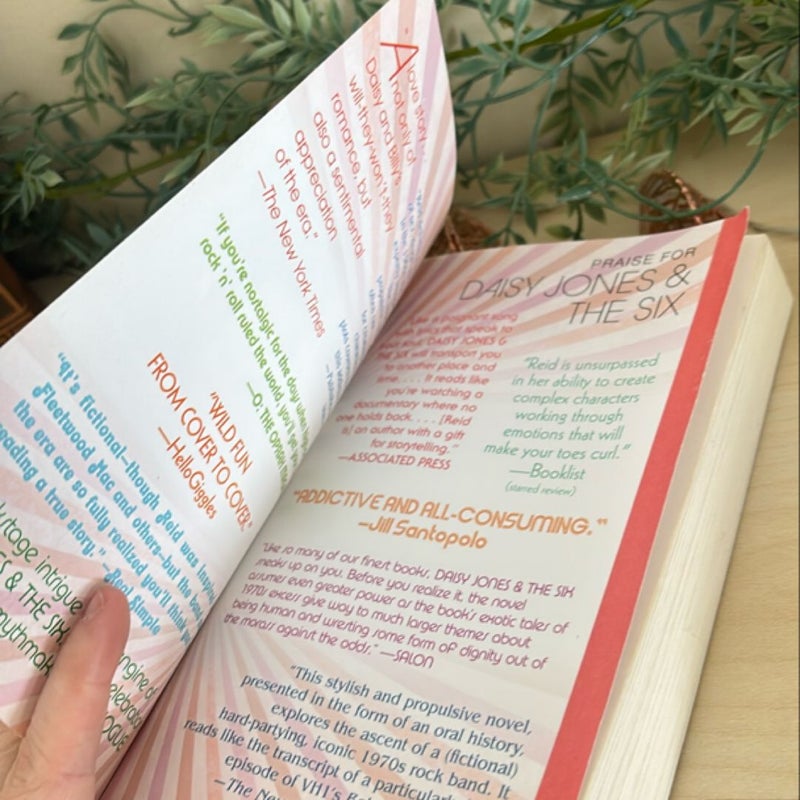 "A love story...
not only of
Daisy and Billy's
will-they-won't-they
romance, but
also a sentimental
appreciation
of the era."
—The New York Times
"If you're nostalgic for the day when
rock 'n' roll ruled the world, you'll
—O: THE OPRAH
"WILD FUN
FROM COVER TO COVER."
—HelloGiggles
"It's fictional—though Reid was
Fleetwood Mac and others—but the
the era are so fully realized you'll think
reading a true story." —Real Simple
intrigue
& THE SIX
engine of
PRAISE FOR
DAISY JONES &
THE SIX
a poignant song
that speak to
DAISY JONES &
THE SIX will transport you
to another place and
time. . . . It reads like
you're watching a
documentary where no
one holds back. . . . [Reid
is] an author with a gift
for storytelling."
—ASSOCIATED PRESS
"Reid is unsurpassed
in her ability to create
complex characters
working through
emotions that will
make your toes curl."
—Booklist
(starred review)
"ADDICTIVE AND ALL-CONSUMING."
—Jill Santopolo
"Like so many of our finest books, DAISY JONES & THE SIX
sneaks up on you. Before you realize it, the novel
assumes even greater power as the book's exotic tales of
1970s excess give way to much larger themes about
being human and wresting some form of dignity out of
the morass against the odds." —SALON
"This stylish and propulsive novel,
presented in the form of an oral history,
explores the ascent of a (fictional)
hard-partying, iconic 1970s rock band. It
reads like the transcript of a particularly
episode of VH1's
—The